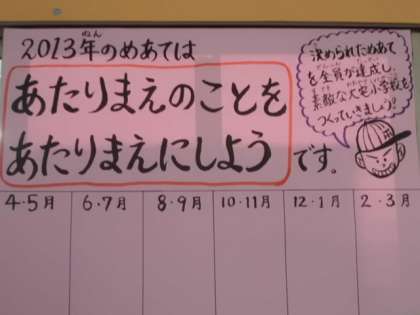 2013年のめあては
あたりまえのことを
あたりまえにしよう
です。
決められためあて
を全員が達成し、
素敵な大宅小学校を
つくっていきましょう!
4・5月 6・7月 8・9月 10・11月 12・1月 2・3月